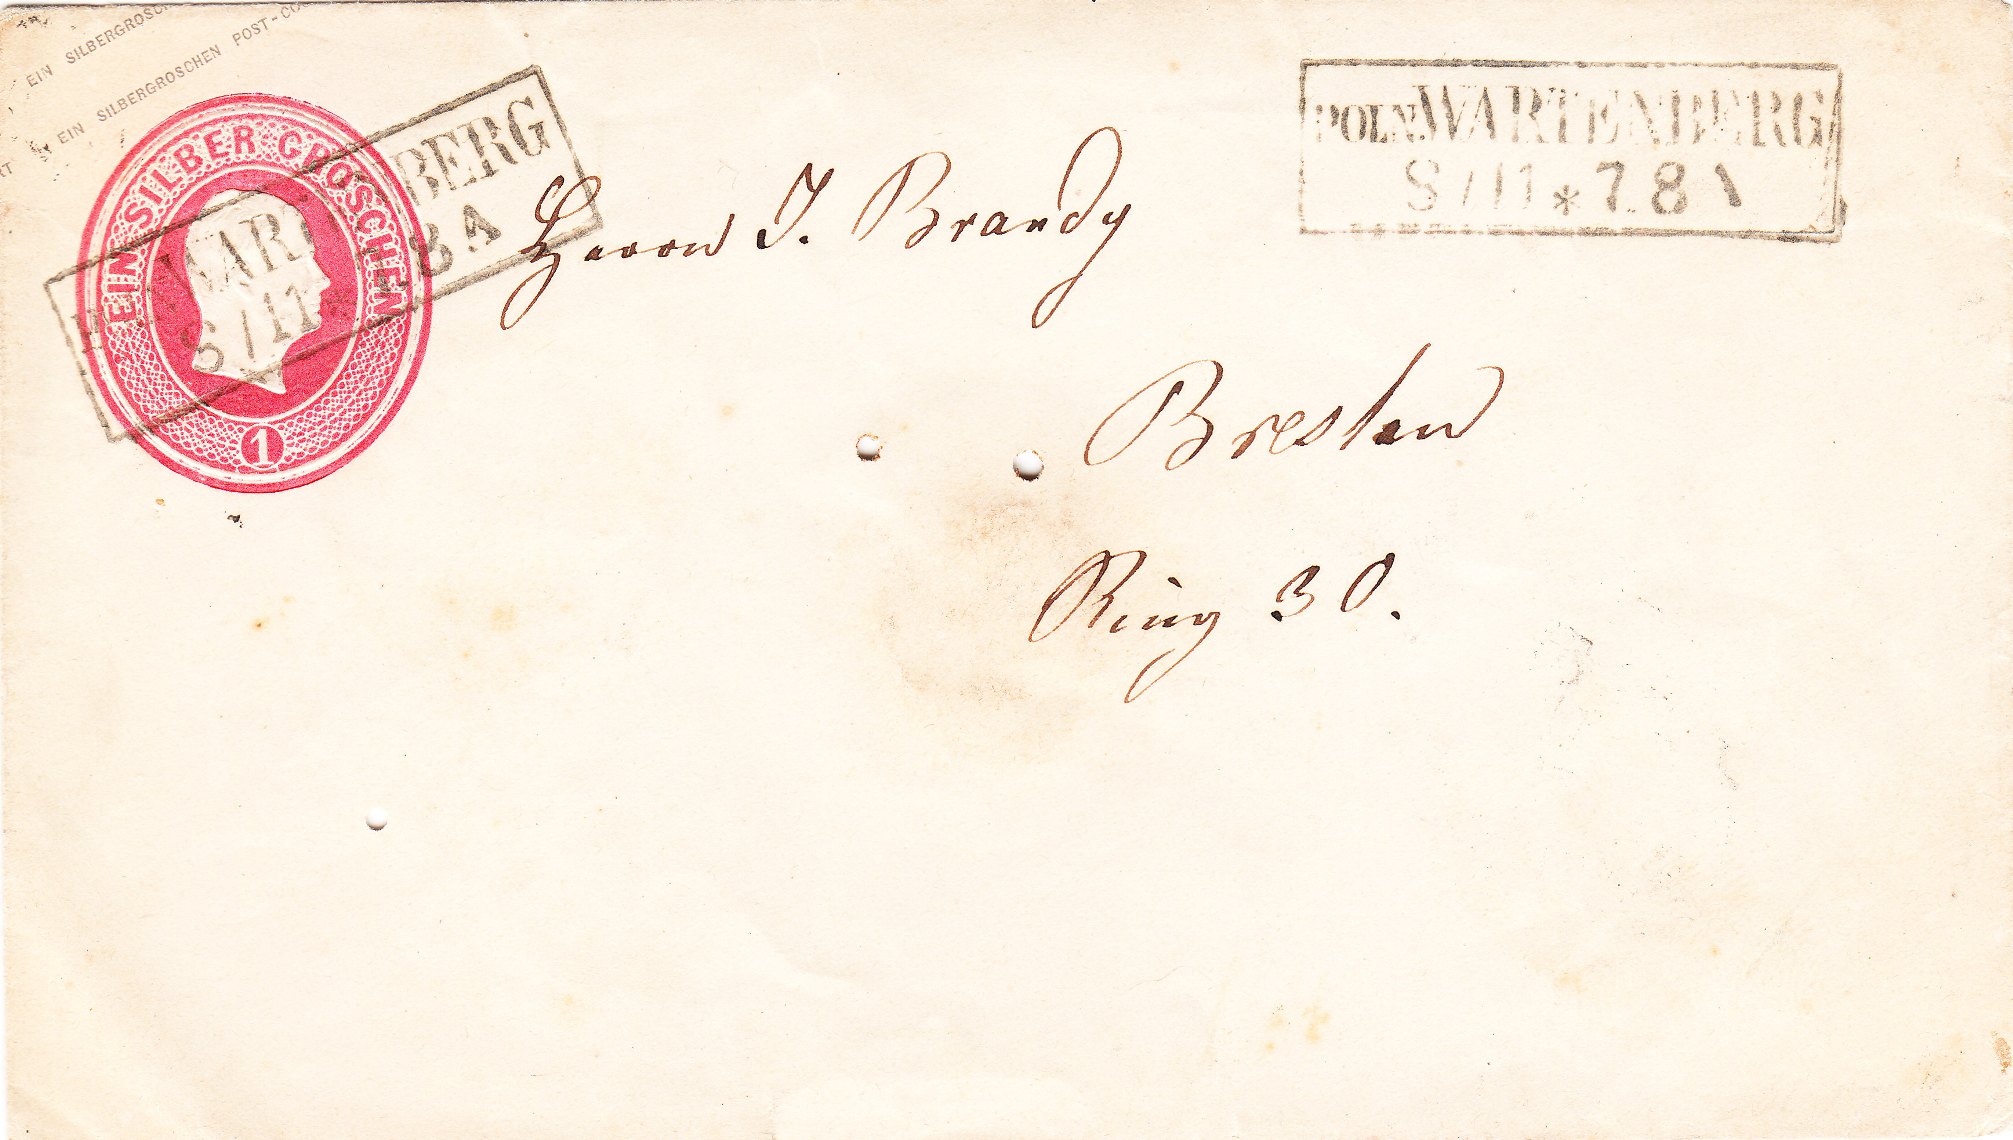 EIN SILBERGROSC
EIN SILBERGROSCHEN POST-CO
RT
EIN SILBER GROSCHEN
1
WARTENBERG
8/11 * 7 8 A
POLN. WARTENBERG
8/11 * 7 8 A
Herrn J. Brandy
Breslau
Ring 30.